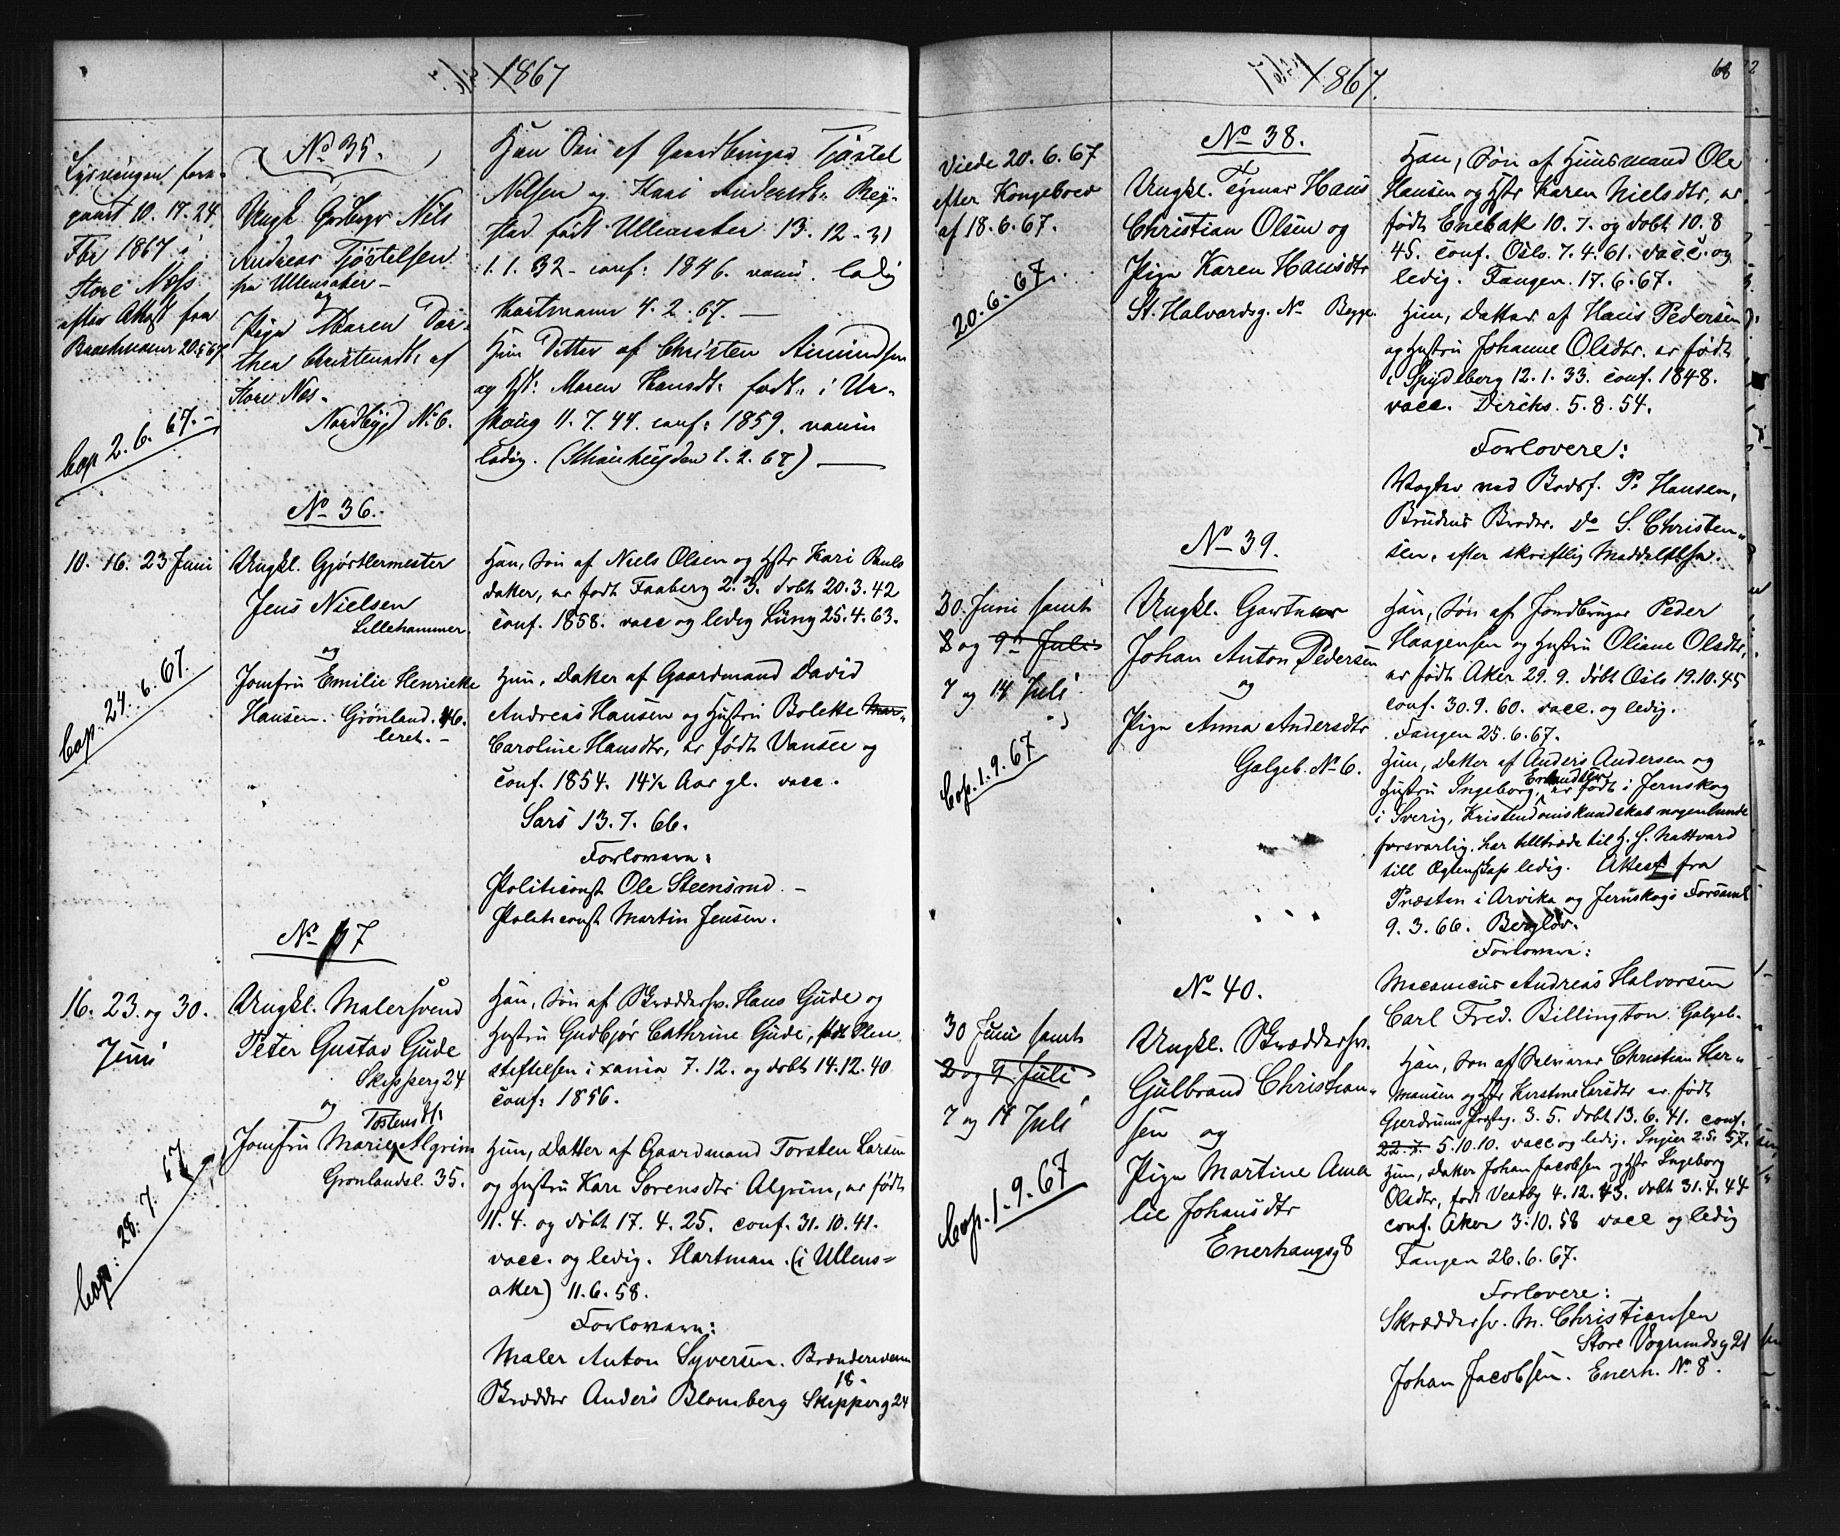 1867
No 35.
Lysningen fore-
gaaet 10. 17. 24.
Fbr 1867 i
Store Næs
efter Attest fra
Bachmann 20.5.67
Cop 2. 6. 67. -
Ungk. Grbgr Nils
Andreas Tjøstelsen
fra Ullensaker -
og
Pige Maren Dor-
thea Christensdt. af
Store Næs -
Nordbygd No 6.
Han Søn af Gaardbruger Tjøstel
Nilsen og Kari Andersdt.
født Ullensaker 13. 12. 31
1. 1. 32 - conf: 1846. vacc. ledig
Hartmann 4. 2. 67. —
Hun Datter af Christen Amundsen
og Hst: Maren Hansdt. født i Ur-
skoug 11. 7. 44. conf: 1859. vaccin
ledig. 1. 2. 67) —
No 36.
10. 16. 23 Juni
Cop. 24. 6. 67.
Ungkl. Gjørtlermester
Jens Nielsen
Lillehammer.
og
Jomfru Emilie Henrikke
Hansen. Grønland. 46.
leret. -
Han, Søn af Niels Olsen og Hstr Kari Pauls
datter, er født Faaberg 2. 3. døbt 20. 3. 42
conf. 1858. vacc og ledig Lüng 25. 4. 63.
Hun, Datter af Gaardmand David
Andreas Hansen og Hustru Bolette Mar-
Caroline Hansdtr, er født Vansee og
conf. 1854. 14½ Aar gl. vacc.
Sars 13. 7. 66.
Forlovere:
Politiconst Ole Steensrud. -
Politiconst Martin Jensen.
No 37
16. 23. og 30.
Juni
Cop: 28. 7. 67.
Ungkl. Malersvend
Peter Gustav Gude
Skipperg 24
og
Torstensdt:
Jomfru Marie Algrim
Grønlandsl. 35.
Han, Søn af Skræddersv. Hans Gude og
Hustru Gudbjør Cathrine Gude, født
stiftelsen i xania 7. 12. og døbt 14. 12. 40.
conf: 1856.
Hun, Datter af Gaardmand Torsten Larsen
og Hustru Kari Sørensdtr Algrim, er født
11. 4. og døbt 17. 4. 25. conf. 31. 10. 41.
vacc. og ledig. Hartman. (i Ullens=
aker) 11. 6. 58.
Forlovere:
Maler Anton Syversen. Brænderiveien
18.
Skrædder Anders Blomberg Skipperg 24
1867.
68
No 38.
Viede 20. 6. 67
efter Kongebrev
af 18. 6. 67.
20. 6. 67.
Ungkl. Hans
Christian Olsen og
Pige Karen Hansdtr
St. Halvardsg. No
Han, Søn af Huusmand Ole
Hansen og Hstr Karen Nielsdtr, er
født Enebak 10. 7. og døbt 10. 8
45. conf. Oslo. 7. 4. 61. vacc. og
ledig. Fangen. 17. 6. 67.
Hun, Datter af Hans Pedersen
og Hustru Johanne Olsdtr. er født
i Spydeberg 12. 1. 33. conf. 1848.
vacc. Dircks. 5. 8. 54.
Forlovere:
Vogter ved Bodsf. P. Hansen,
Brudens Broder. Do S. Christen-
sen, efter skriftlig Meddelelse.
No 39.
30. Juni samt
8 og 9de Juli
7 og 14 Juli
Cop. 1. 9. 67
Ungkl. Gartner
Johan Anton Pedersen
og
Pige Anna Andersdtr
Galgeb. No 6.
Han, Søn af Jordbruger Peder
Haagensen og Hustru Oliane Olsdtr,
er født Aker 29. 9. døbt Oslo 19. 10. 45
conf. 30. 9. 60. vacc. og ledig.
Fangen 25. 6. 67.
Hun, Datter af Anders Andersen og
Hustru Ingeborg Erlandsdtr, er født i Jernskog
i Sverig, Kristendomskundskab nogenlunde
forsvarlig. har tilltræde til H. H. Nattvard
till Ægtenskap ledig. Attest fra
Præsten i Arvika og Jernskogs Forsaml.
9. 3. 66. Berglöv.
Forlovere:
Mecanicus Andreas Halvorsen
Carl Fred. Billington. Galgeb.
No 40.
30 Juni samt
2 og 9 Juli
7 og 14 Juli
Cop. 1. 9. 67
Ungkl. Skræddersv.
Gulbrand Christian-
sen og
Pige Martine Ama
lie Johansdtr
Enerhaugsg 8
Han, Søn af Christian Her-
mansen og Hstr Kirstine Larsdtr er født
Gjerdrums Præstg. 3. 5. døbt 13. 6. 41. conf.
22. 7. 5. 10. 10. vacc og ledig. Ingier 2. 5. 57.
Hun, Datter Johan Jacobsen og Hstr Ingeborg
Olsdtr, født Vestby 4. 12. 43. døbt 31. 7. 44
conf. Aker 3. 10. 58 vacc og ledig
Fangen 26. 6. 67.
Forlovere:
Skræddersv. M. Christiansen
Store Vognmandsg 21
Johan Jacobsen. Enerh. No 8.